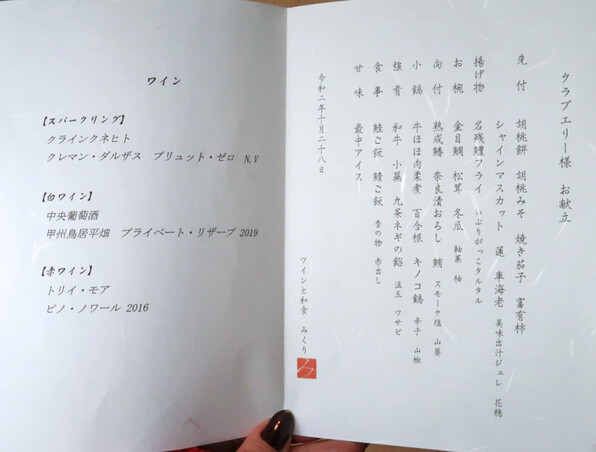 ワイン
【スパークリング】
クラインクネヒト
クレマン・ダルザス ブリュット・ゼロ N.V
【白ワイン】
中央葡萄酒
甲州鳥居平畑 プライベート・リザーブ 2019
【赤ワイン】
トリイ・モア
ピノ・ノワール 2016
クラブエリー様 お献立
先付 胡桃餅 胡桃みそ 焼き茄子 富有柿
シャインマスカット 蓮 車海老 美味出汁ジュレ 花穂
揚げ物 名残鱧フライ いぶりがっこタルタル
お椀 金目鯛 松茸 冬瓜 軸菜 柚
向付 熟成鰆 奈良漬おろし 鮪 スモーク塩 山葵
小鍋 牛ほほ肉柔煮 百合根 キノコ鍋 辛子 山椒
強肴 和牛 小蕪 九条ネギの餡 温玉 ワサビ
食事 鮭ご飯 鯖ご飯 香の物 赤出し
甘味 最中アイス
令和二年十月二十八日
ワインと和食 みくり
み